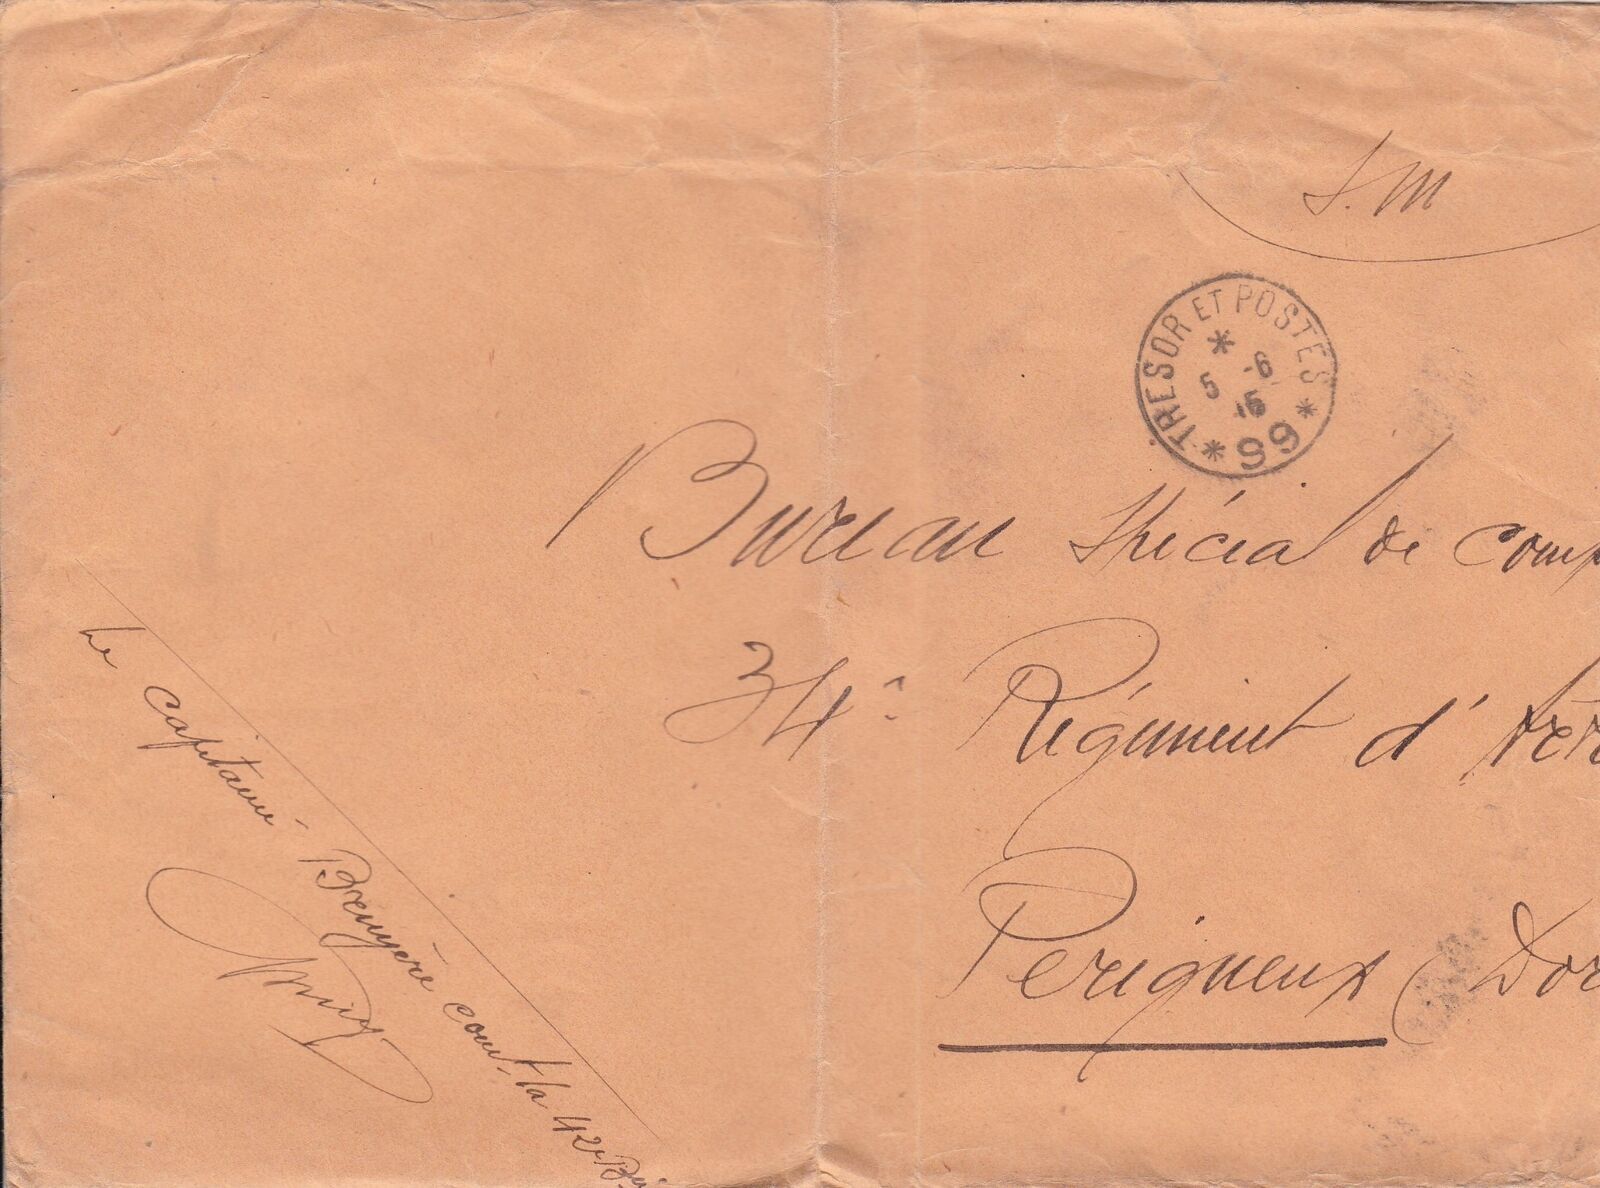 S.M
TRESOR ET POSTES
* 5 -6 15
* 99 *
Bureau Spécial de comp
34e Régiment d'Art
Périgueux (Dor
Le capitaine Breuyère comt la 42e B